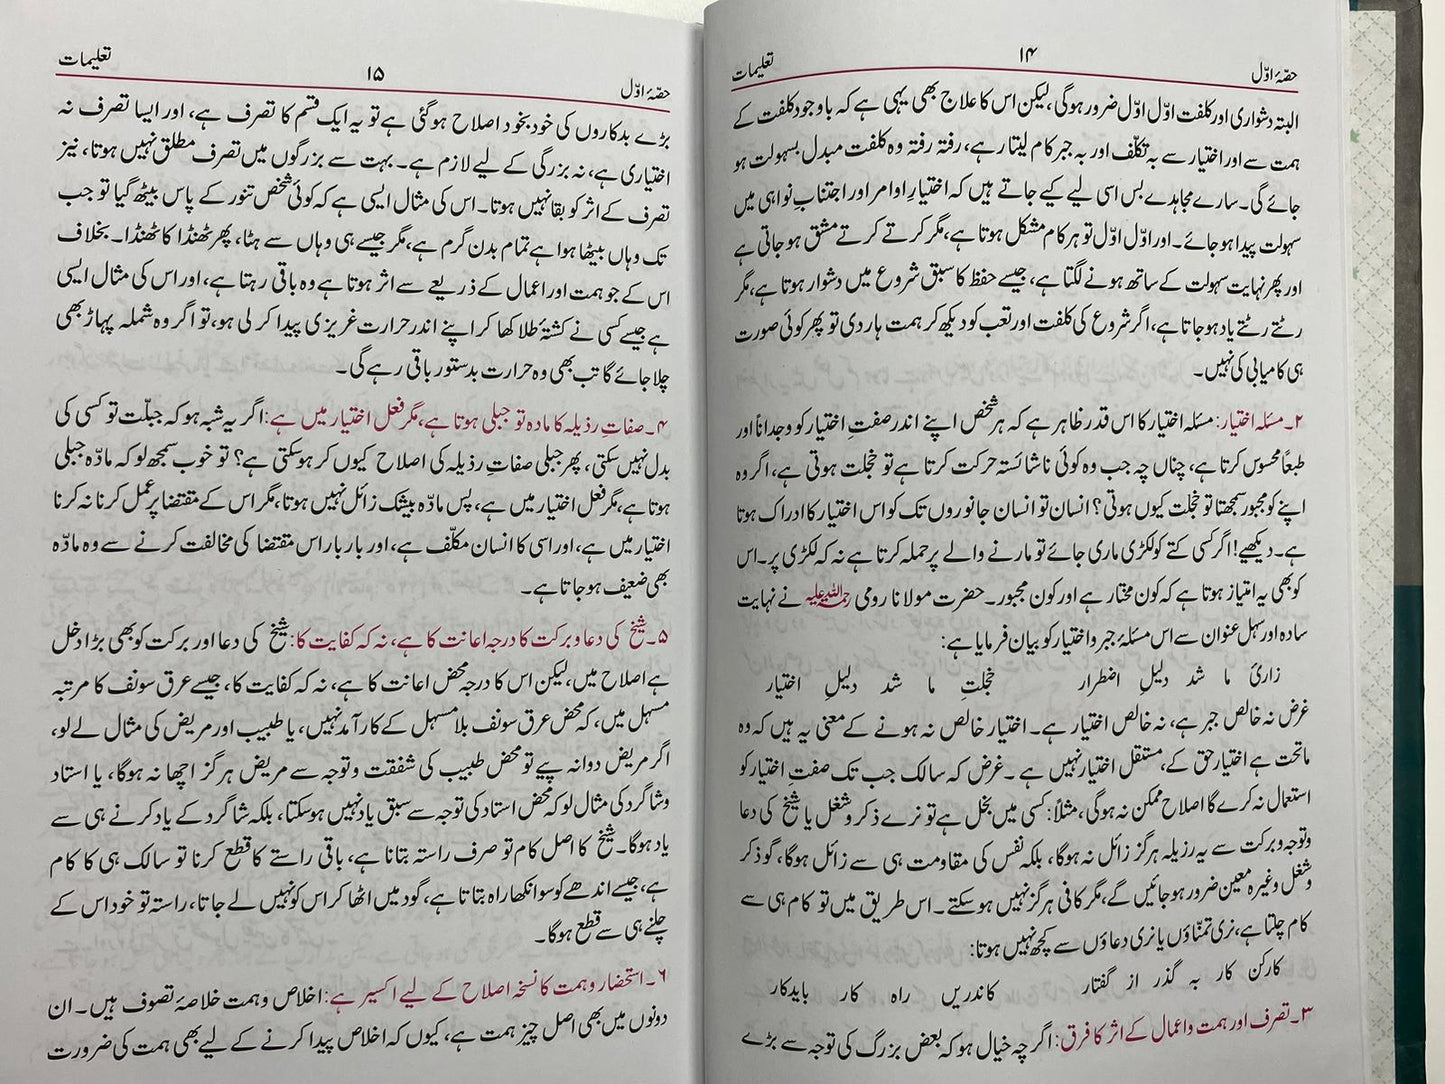 حصّۂ اوّل ۱۴ تعلیمات
البتہ دشواری اور کلفت اوّل اوّل ضرور ہوگی، لیکن اس کا علاج بھی یہی ہے کہ باوجود کلفت کے
ہمت سے اور اختیار سے بہ تکلّف اور بہ جبر کام لیتا رہے، رفتہ رفتہ وہ کلفت مبدل بسہولت ہو
جائے گی۔ سارے مجاہدے بس اسی لیے کیے جاتے ہیں کہ اختیارِ اوامر اور اجتنابِ نواہی میں
سہولت پیدا ہو جائے۔ اور اوّل اوّل تو ہر کام مشکل ہوتا ہے، مگر کرتے کرتے مشق ہو جاتی ہے
اور پھر نہایت سہولت کے ساتھ ہونے لگتا ہے، جیسے حفظ کا سبق شروع میں دشوار ہوتا ہے، مگر
رٹتے رٹتے یاد ہو جاتا ہے، اگر شروع کی کلفت اور تعب کو دیکھ کر ہمت ہار دی تو پھر کوئی صورت
ہی کامیابی کی نہیں۔
۲۔ مسئلہ اختیار: مسئلہ اختیار کا اس قدر ظاہر ہے کہ ہر شخص اپنے اندر صفتِ اختیار کو وجداناً اور
طبعاً محسوس کرتا ہے، چناں چہ جب وہ کوئی ناشائستہ حرکت کرتا ہے تو خجلت ہوتی ہے، اگر وہ
اپنے کو مجبور سمجھتا تو خجلت کیوں ہوتی؟ انسان تو انسان جانوروں تک کو اس اختیار کا ادراک ہوتا
ہے۔ دیکھیے! اگر کسی کتے کو لکڑی ماری جائے تو مارنے والے پر حملہ کرتا ہے نہ کہ لکڑی پر۔ اس
کو بھی یہ امتیاز ہوتا ہے کہ کون مختار ہے اور کون مجبور۔ حضرت مولانا رومی رحمۃ اللہ علیہ نے نہایت
سادہ اور سہل عنوان سے اس مسئلہ جبر و اختیار کو بیان فرمایا ہے:
زاریٔ ما شد دلیلِ اضطرار خجلتِ ما شد دلیلِ اختیار
غرض نہ خالص جبر ہے، نہ خالص اختیار ہے۔ اختیار خالص نہ ہونے کے معنی یہ ہیں کہ وہ
ماتحت ہے اختیارِ حق کے، مستقل اختیار نہیں ہے۔ غرض کہ سالک جب تک صفت اختیار کو
استعمال نہ کرے گا اصلاح ممکن نہ ہوگی، مثلاً: کسی میں بخل ہے تو نرے ذکر و شغل یا شیخ کی دعا
و توجہ و برکت سے یہ رزیلہ ہرگز زائل نہ ہوگا، بلکہ نفس کی مقاومت ہی سے زائل ہوگا، گو ذکر
و شغل وغیرہ معین ضرور ہو جائیں گے، مگر کافی ہرگز نہیں ہو سکتے۔ اس طریق میں تو کام ہی سے
کام چلتا ہے، نری تمنّاؤں یا نری دعاؤں سے کچھ نہیں ہوتا:
کارکن کار بہ گذر از گفتار کاندریں راہ کار بایدکار
۳۔ تصرف اور ہمت و اعمال کے اثر کا فرق: اگر چہ خیال ہو کہ بعض بزرگ کی توجہ سے بڑے
حصّۂ اوّل ۱۵ تعلیمات
بڑے بدکاروں کی خود بخود اصلاح ہو گئی ہے تو یہ ایک قسم کا تصرف ہے، اور ایسا تصرف نہ
اختیاری ہے، نہ بزرگی کے لیے لازم ہے۔ بہت سے بزرگوں میں تصرف مطلق نہیں ہوتا، نیز
تصرف کے اثر کو بقا نہیں ہوتا۔ اس کی مثال ایسی ہے کہ کوئی شخص تنور کے پاس بیٹھ گیا تو جب
تک وہاں بیٹھا ہوا ہے تمام بدن گرم ہے، مگر جیسے ہی وہاں سے ہٹا، پھر ٹھنڈا کا ٹھنڈا۔ بخلاف
اس کے جو ہمت اور اعمال کے ذریعے سے اثر ہوتا ہے وہ باقی رہتا ہے، اور اس کی مثال ایسی
ہے جیسے کسی نے کشتۂ طلا کھا کر اپنے اندر حرارت غریزی پیدا کر لی ہو، تو اگر وہ شملہ پہاڑ بھی
چلا جائے گا تب بھی وہ حرارت بدستور باقی رہے گی۔
۴۔ صفاتِ رذیلہ کا مادہ تو جبلی ہوتا ہے، مگر فعل اختیار میں ہے: اگر یہ شبہ ہو کہ جبلّت تو کسی کی
بدل نہیں سکتی، پھر جبلی صفاتِ رذیلہ کی اصلاح کیوں کر ہو سکتی ہے؟ تو خوب سمجھ لو کہ مادّہ جبلی
ہوتا ہے، مگر فعل اختیار میں ہے، پس مادّہ بیشک زائل نہیں ہوتا، مگر اس کے مقتضا پر عمل کرنا نہ کرنا
اختیار میں ہے، اور اسی کا انسان مکلّف ہے، اور بار بار اس مقتضا کی مخالفت کرنے سے وہ مادّہ
بھی ضعیف ہو جاتا ہے۔
۵۔ شیخ کی دعا و برکت کا درجہ اعانت کا ہے، نہ کہ کفایت کا: شیخ کی دعا اور برکت کو بھی بڑا دخل
ہے اصلاح میں، لیکن اس کا درجہ محض اعانت کا ہے، نہ کہ کفایت کا، جیسے عرق سونف کا مرتبہ
مسہل میں، کہ محض عرق سونف بلا مسہل کے کار آمد نہیں، یا طبیب اور مریض کی مثال لے لو،
اگر مریض دوا نہ پیے تو محض طبیب کی شفقت و توجہ سے مریض ہرگز اچھا نہ ہوگا، یا استاد
و شاگرد کی مثال لو کہ محض استاد کی توجہ سے سبق یاد نہیں ہو سکتا، بلکہ شاگرد کے یاد کرنے ہی سے
یاد ہوگا۔ شیخ کا اصل کام تو صرف راستہ بتانا ہے، باقی راستے کا قطع کرنا تو سالک ہی کا کام
ہے، جیسے اندھے کو سوانکھا راہ بتاتا ہے، گود میں اٹھا کر اس کو نہیں لے جاتا، راستہ تو خود اس کے
چلنے ہی سے قطع ہوگا۔
۶۔ استحضار و ہمت کا نسخہ اصلاح کے لیے اکسیر ہے: اخلاص و ہمت خلاصۂ تصوف ہیں۔ ان
دونوں میں بھی اصل چیز ہمت ہے، کیوں کہ اخلاص پیدا کرنے کے لیے بھی ہمت کی ضرورت